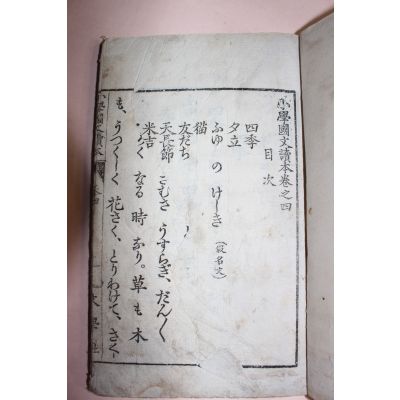 小學國文讀本卷之四
目次
四季
夕立
ふゆ の けしき (假名文)
猫
友だち
天長節
さむさ うすらぎ、だん〱
米吉
く なる 時 なり。草も木
も、うつくしく 花さく、とりわけて、さく
小學國文讀本
文學社